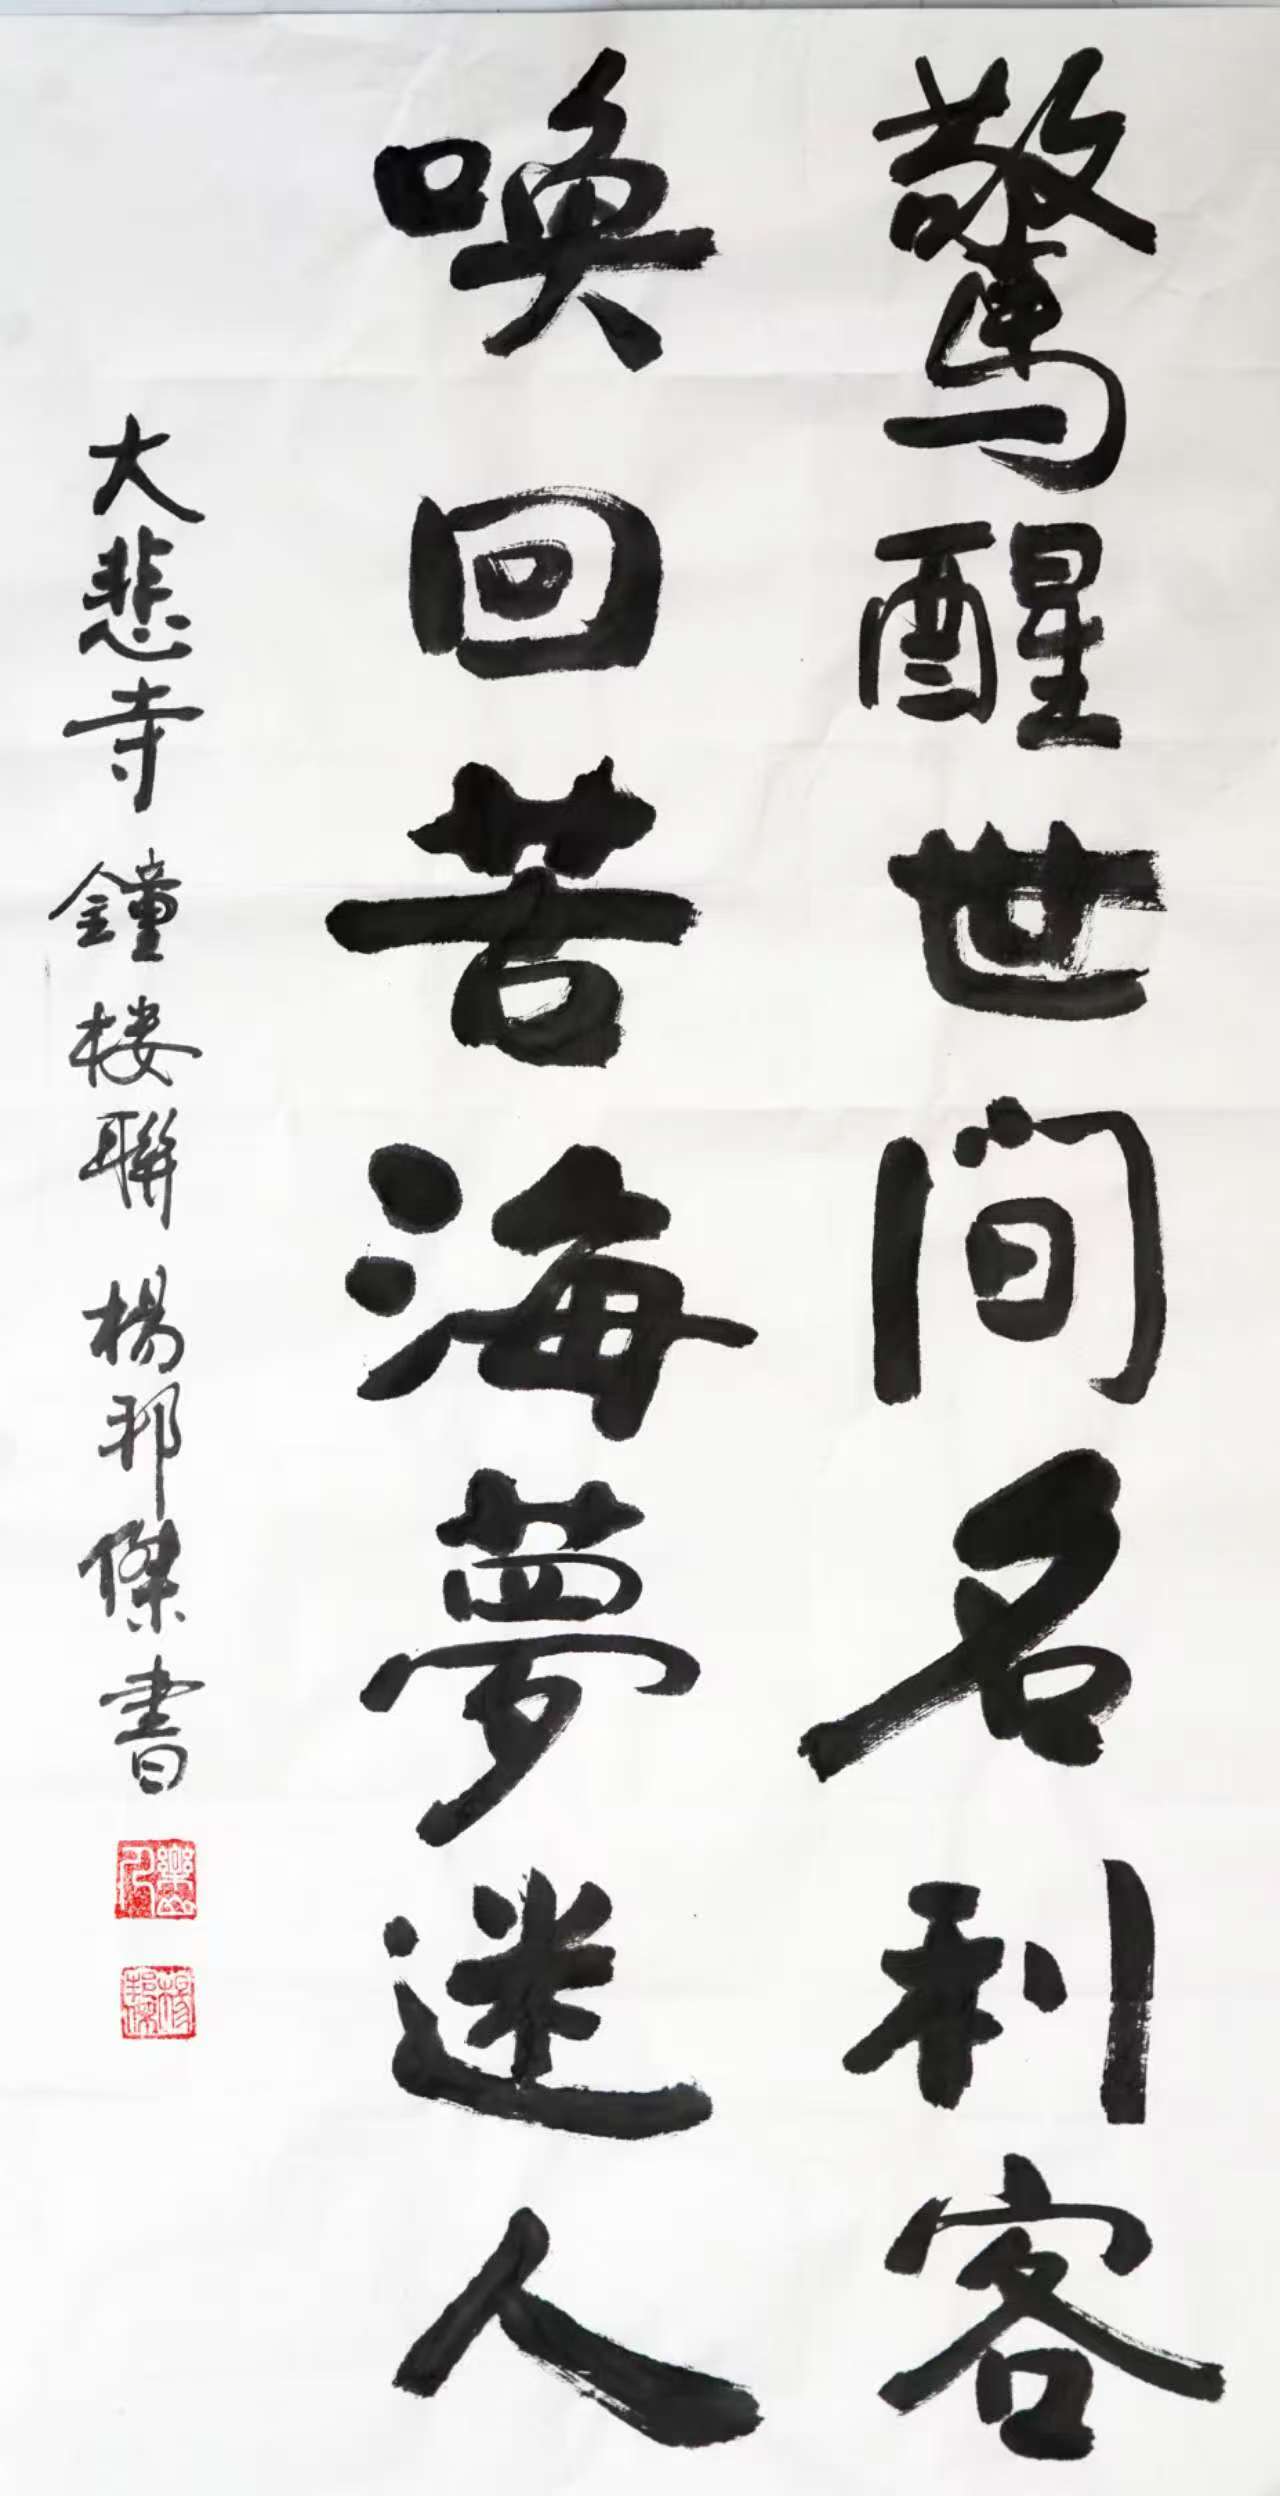 驚醒世间名利客
喚回苦海夢迷人
大悲寺鐘楼聯 楊邦傑書